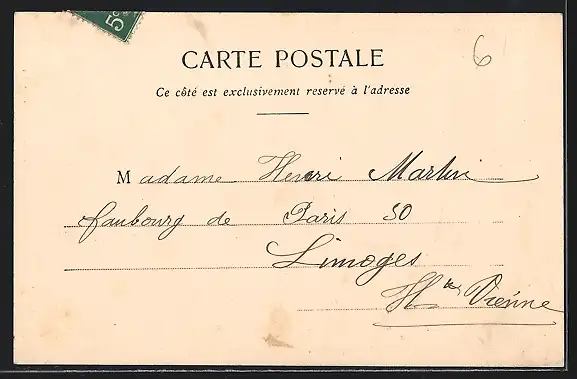 5c
6
CARTE POSTALE
Ce côté est exclusivement reservé à l'adresse
Madame Henri Martin
faubourg de Paris 50
Limoges
Hte Vienne